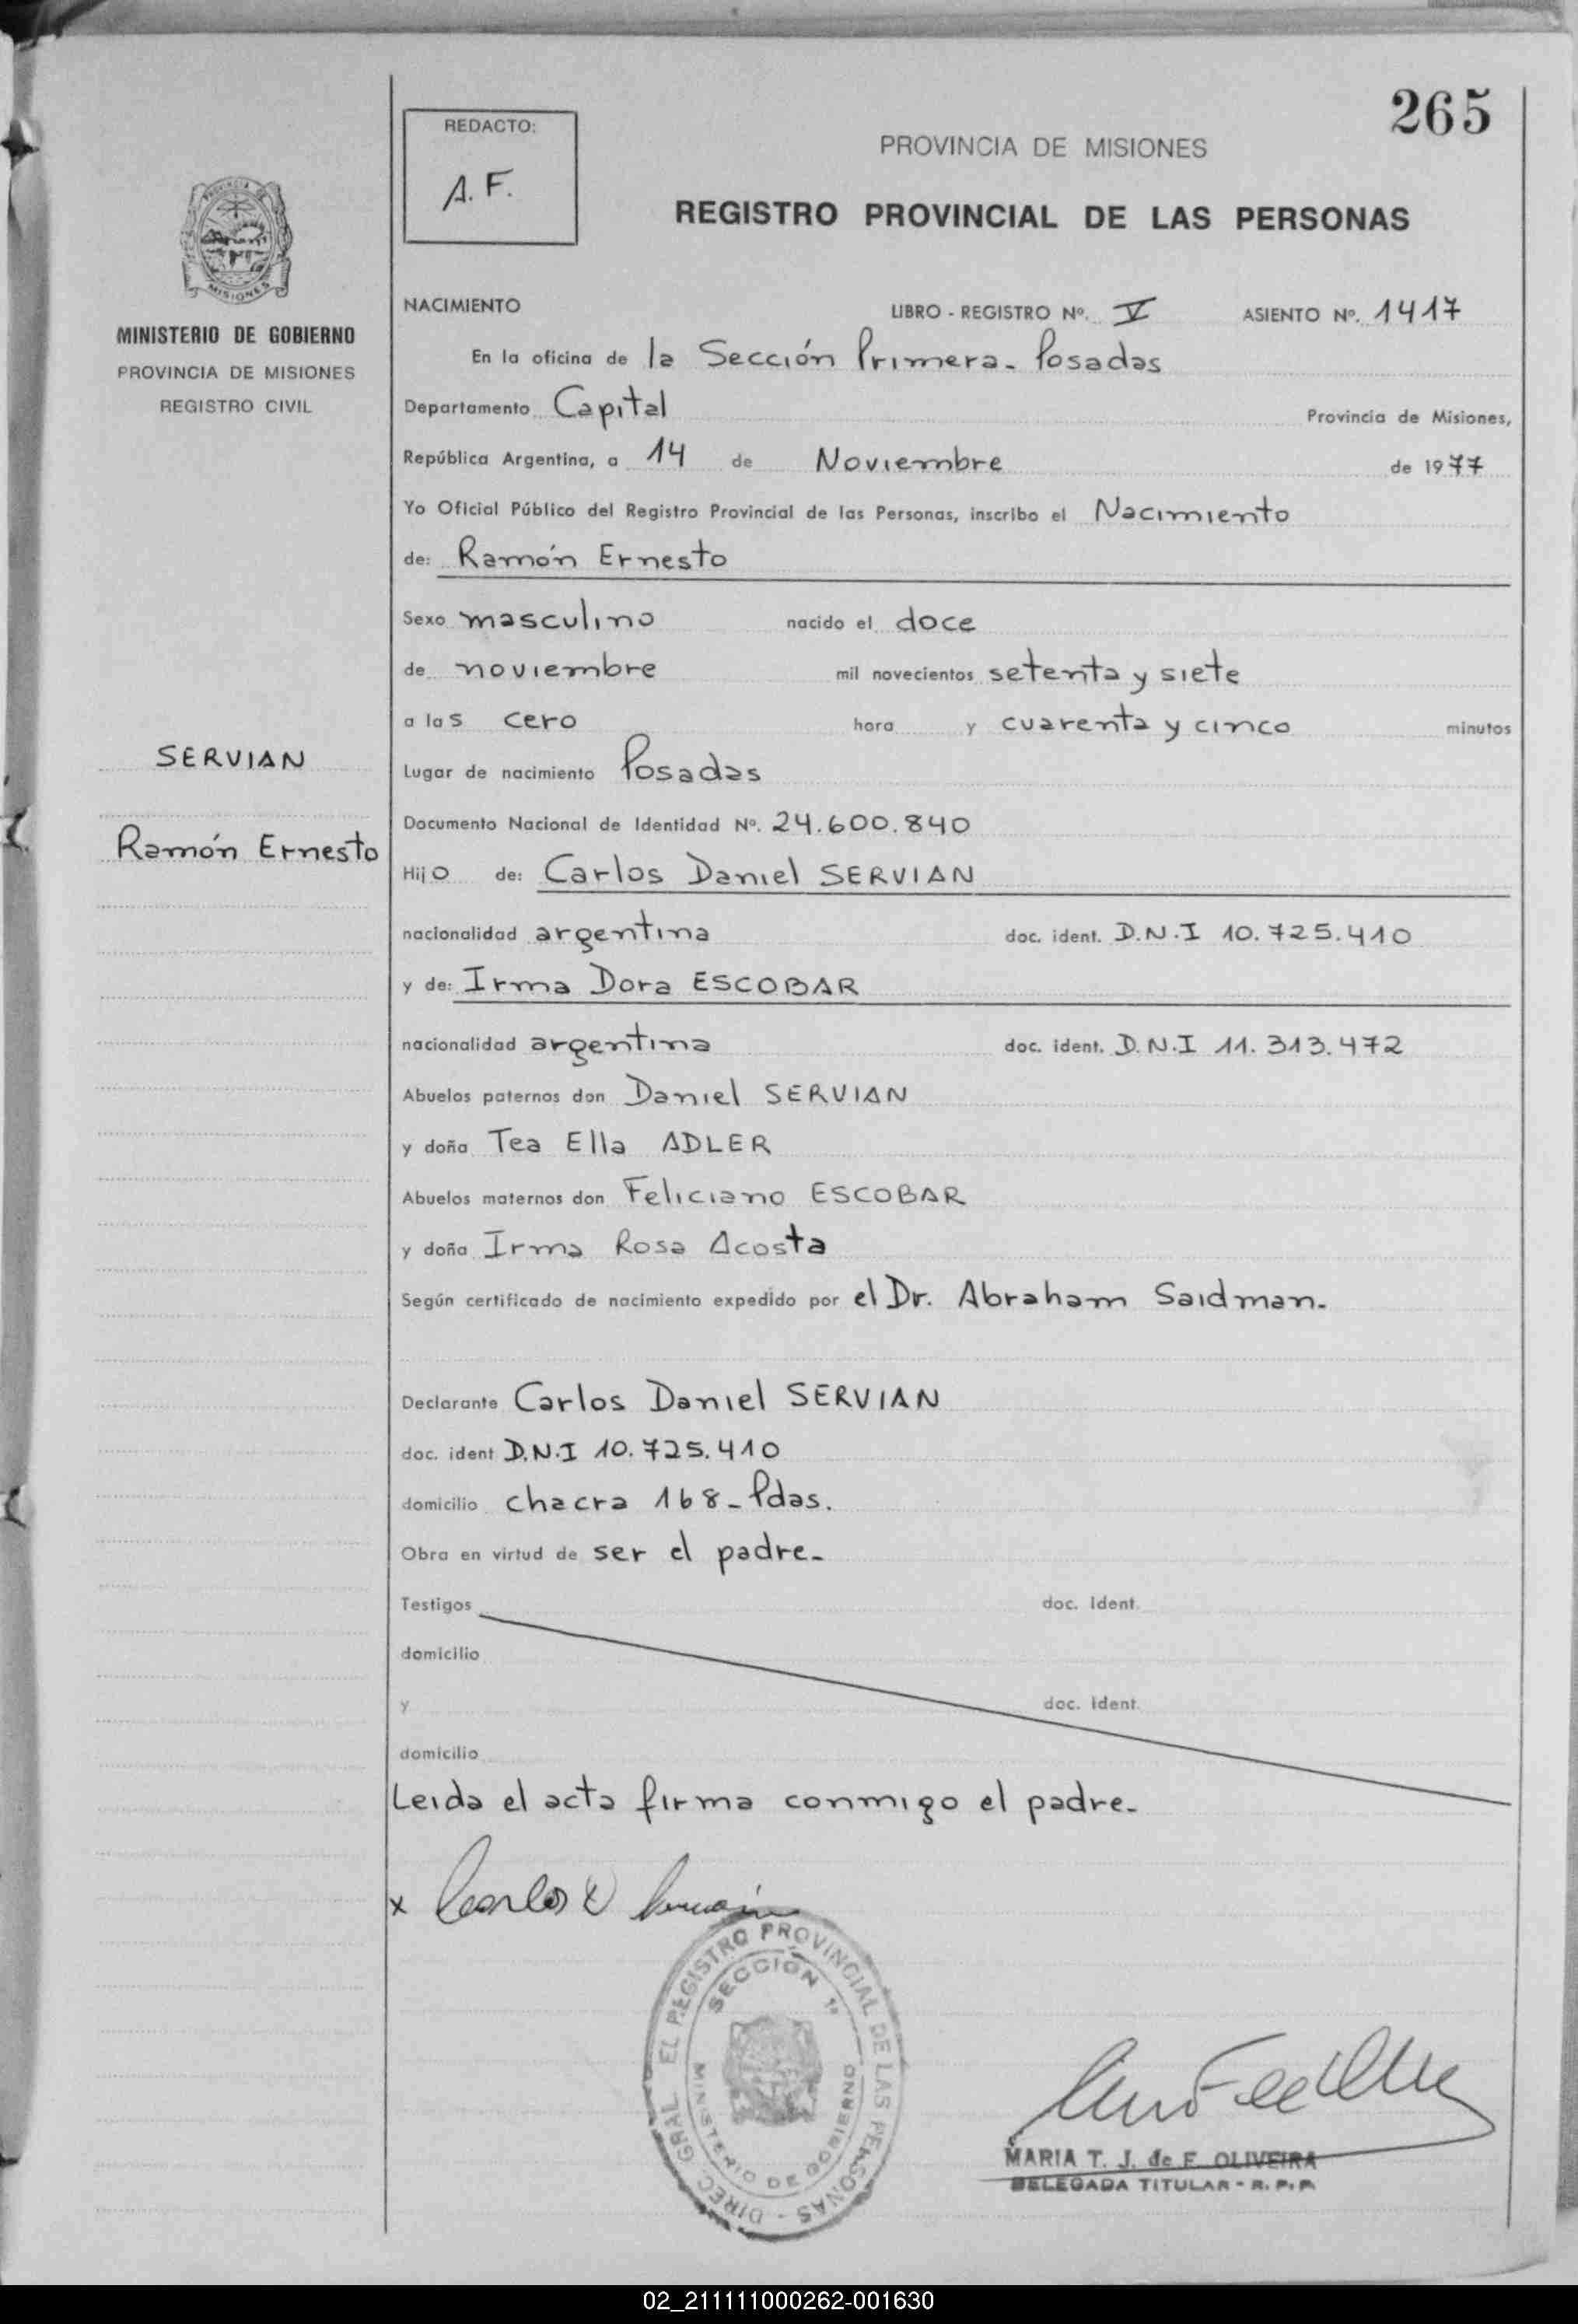 265
REDACTO:
A. F.
PROVINCIA DE MISIONES
REGISTRO PROVINCIAL DE LAS PERSONAS
PROVINCIA DE
MISIONES
MINISTERIO DE GOBIERNO
PROVINCIA DE MISIONES
REGISTRO CIVIL
SERVIAN
Ramón Ernesto
NACIMIENTO LIBRO - REGISTRO Nº. V ASIENTO Nº. 1417
En la oficina de la Sección Primera - Posadas
Departamento Capital Provincia de Misiones,
República Argentina, a 14 de Noviembre de 1977
Yo Oficial Público del Registro Provincial de las Personas, inscribo el Nacimiento
de: Ramón Ernesto
Sexo masculino nacido el doce
de noviembre mil novecientos setenta y siete
a las cero hora y cuarenta y cinco minutos
Lugar de nacimiento Posadas
Documento Nacional de Identidad Nº. 24.600.840
Hijo de: Carlos Daniel SERVIAN
nacionalidad argentina doc. ident. D.N.I 10.725.410
y de: Irma Dora ESCOBAR
nacionalidad argentina doc. ident. D.N.I 11.313.472
Abuelos paternos don Daniel SERVIAN
y doña Tea Ella ADLER
Abuelos maternos don Feliciano ESCOBAR
y doña Irma Rosa Acosta
Según certificado de nacimiento expedido por el Dr. Abraham Saidman.
Declarante Carlos Daniel SERVIAN
doc. ident D.N.I 10.725.410
domicilio chacra 168 - Pdas.
Obra en virtud de ser el padre.
Testigos doc. Ident.
domicilio
y doc. Ident.
domicilio
Leida el acta firma conmigo el padre.
x Carlos D Servián
DIREC. GRAL. EL REGISTRO PROVINCIAL DE LAS PERSONAS -
SECCIÓN 1ª
MINISTERIO DE GOBIERNO
MARIA T. J. de F. OLIVEIRA
DELEGADA TITULAR - R. P. P.
02_211111000262-001630